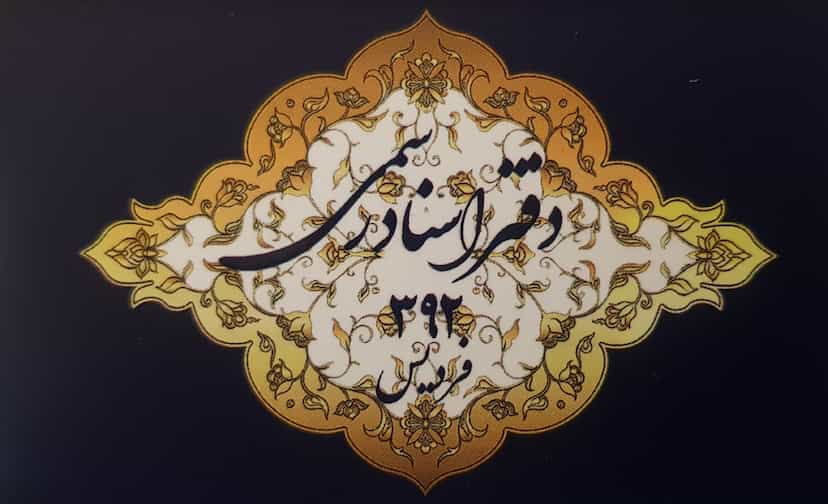 دفتر اسناد رسمی
۳۹۲
فردیس